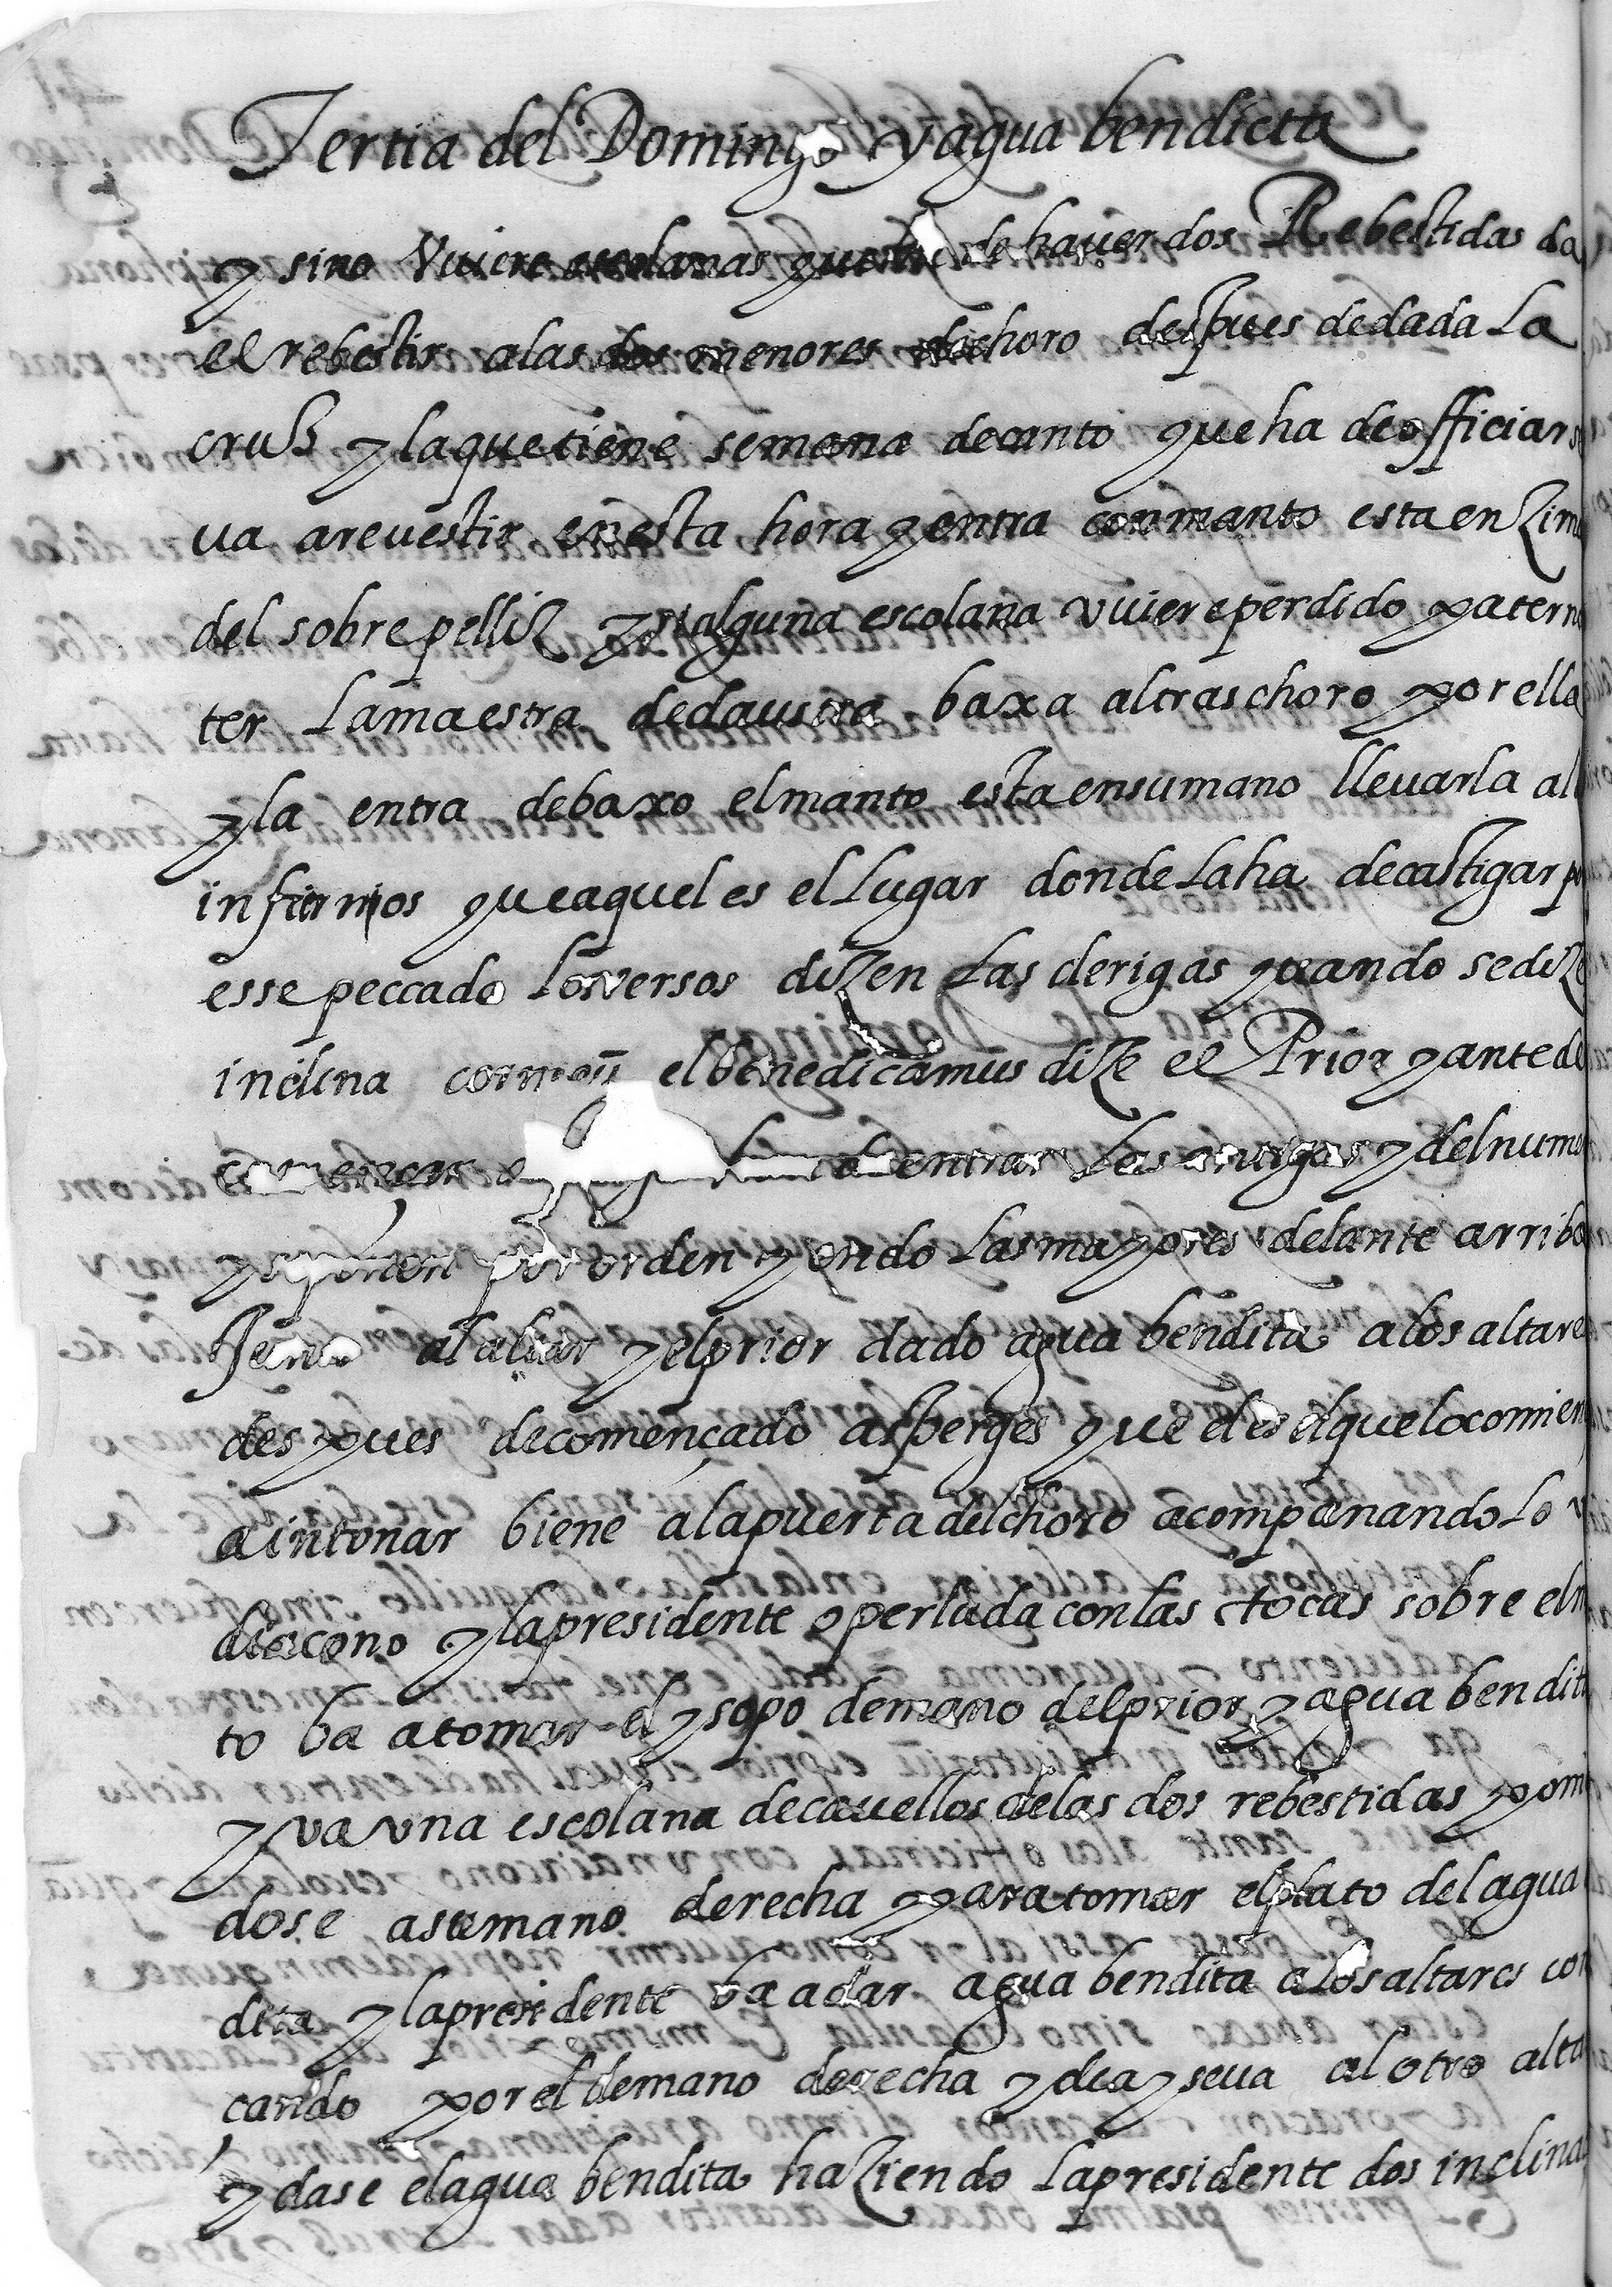 Tertia del Domingo y agua bendicta
y sino Vuiere escolanas que de hauer dos Rebestidas da
el rebestir alas dos menores de choro despues de dada La
cruß y la que tiene semana de canto que ha de officiar se
ua a reuestir en esta hora y entra con manto esta enzima
del sobre pelliz y si alguna escolana vuiere perdido paterno
ter La maestra de claustra baxa al tras choro por ella
y la entra debaxo el manto esta en su mano lleuarla al
infiernos que aquel es el Lugar donde La ha de castigar p
esse peccado Los versos dizen Las clerigas quando se dize
inclina el benedicamus dize el Prior y ante de
començar de entrar Las y del nume
y por orden yendo Las mayores delante arriba
al altar y el prior dado agua bendita a los altares
des pues de començado asperges que el es el que lo comien
a intonar biene a la puerta del choro acompanando Lo
diacono y la presidente o perlada con las tocas sobre el m
to ba a tomar el ysopo de mano del prior y agua bendita
y va vna escolana de cauellos de las dos rebestidas poni
dose a su mano derecha para tomar el plato del agua
dita y la presidente ba a dar agua bendita a Los altares co
çando por el de mano derecha y da y se ua al otro alta
y dase el agua bendita haziendo La presidente dos inclina